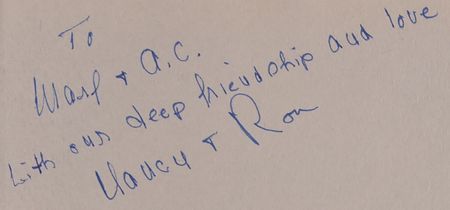 To
Marf + A.C.
With our deep friendship and love
Nancy + Ron